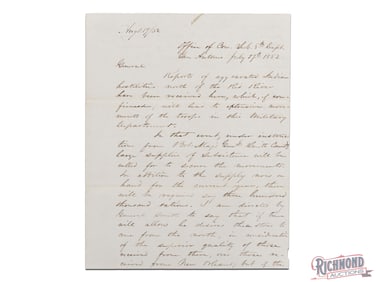 Augt 17/52
Office of Com. Sub. 8th Dept.
San Antonio July 29th 1852.
General
Reports of aggravated Indian
hostilities north of the Rio
have been received here, which, if con-
firmed, will lead to extensive move-
ments of the troops in this Military
Department.
In that event, under instruc-
tion from Bvt. Maj. Genl. Smith Comdg
large supplies of Subsistence will be
called for to season the movements.
In addition to the supply now on
hand for the current year, there
will be required say three hundred
thousand rations. I am directed by
General Smith to say that if time
will allow he desires these stores to
come from the north, in consideration
of the superior quality of those
received from there, over those re-
ceived from New Orleans, but if the
RICHMOND
AUCTIONS